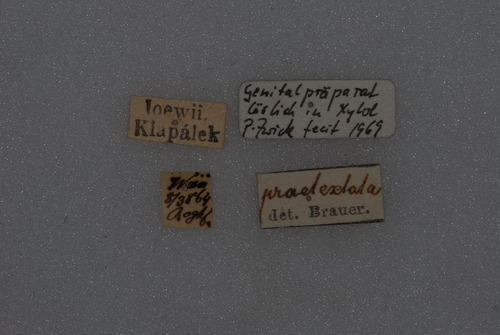 loewii.
Klapálek
Genitalpräparat
löslich in Xylol
P. Zwick fecit 1969
Wien
praetextata
det. Brauer.